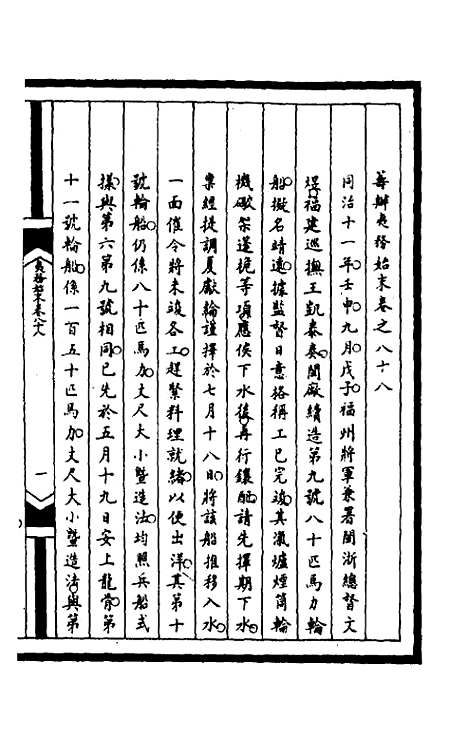 籌辦夷務始末卷之八十八
同治十一年壬申九月戊子福州將軍兼署閩浙總督文
煜福建巡撫王凱泰奏閩廠續造第九號八十匹馬力輪
船擬名靖遠據監督日意格稱工已完竣其滊爐煙筒輪
機砲架蓬桅等項應俟下水後再行鑲配請先擇期下水
業經提調夏獻輪謹擇於七月十八日將該船推移入水
一面催令將未竣各工趕緊料理就緒以便出洋其第十
號輪船仍係八十匹馬力丈尺大小暨造法均照兵船式
樣與第六第九號相同已先於五月十九日安上龍骨第
十一號輪船係一百五十匹馬力丈尺大小暨造法與第
夷務始末卷八十八
一